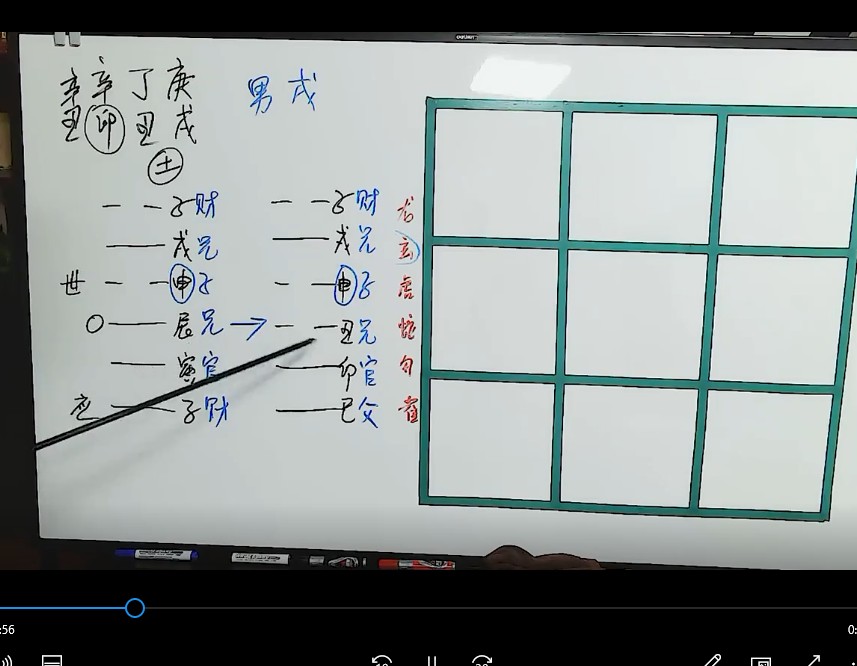 辛 辛 丁 庚 男 戌
丑 卯 丑 戌
土
子财 子财 龙
戌兄 戌兄 玄
世 申子 申子 虎
○ 辰兄 → 丑兄 蛇
寅官 卯官 勾
应 子财 巳父 雀
:56 0:
10 30